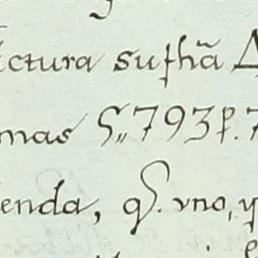 ctura sufhã
mas S,,793 p. 7
enda, qS. vno, y